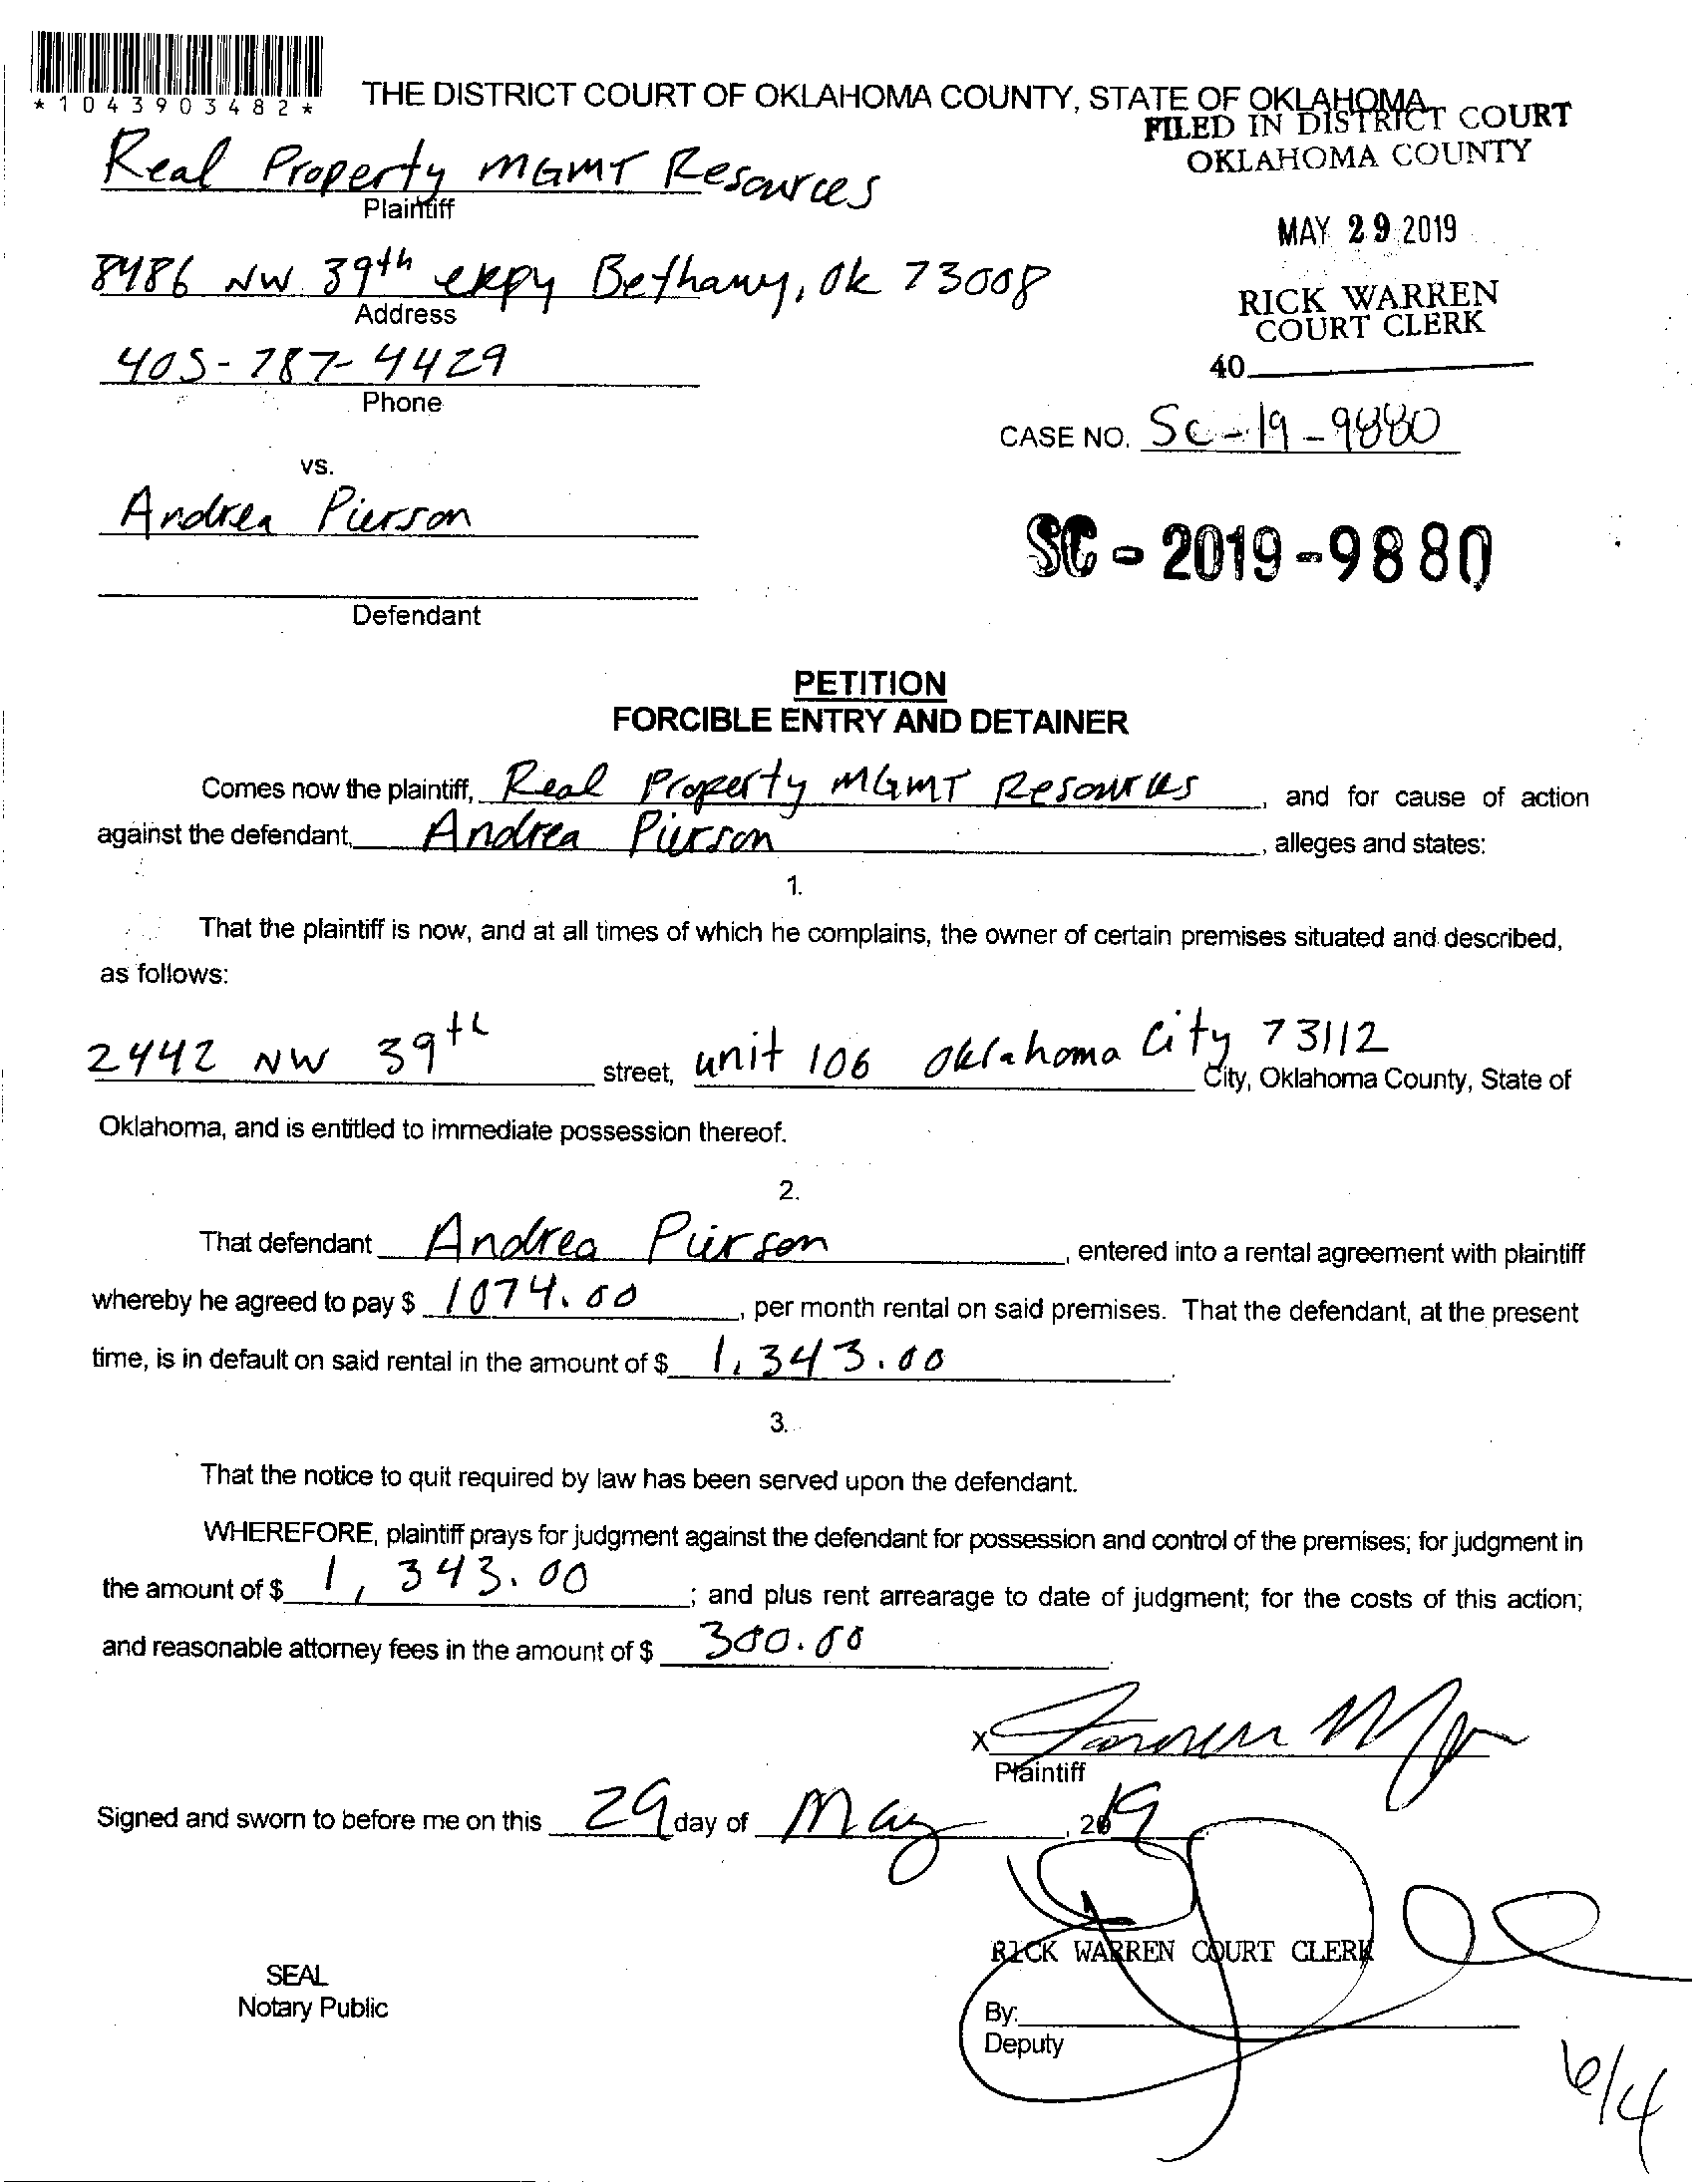 *1043903482*
THE DISTRICT COURT OF OKLAHOMA COUNTY, STATE OF OKLAHOMA
FILED IN DISTRICT COURT
OKLAHOMA COUNTY
Real Property MGMT Resources
Plaintiff
MAY 29 2019
8486 NW 39th expy Bethany, Ok 73008
Address
RICK WARREN
COURT CLERK
405-787-4429
Phone
40
CASE NO. SC-19-9880
vs.
Andrea Pierson
SC-2019-9880
Defendant
PETITION
FORCIBLE ENTRY AND DETAINER
Comes now the plaintiff, Real Property MGMT Resources, and for cause of action
against the defendant, Andrea Pierson, alleges and states:
1.
That the plaintiff is now, and at all times of which he complains, the owner of certain premises situated and described,
as follows:
2442 NW 39th street, unit 106 Oklahoma City 73112 City, Oklahoma County, State of
Oklahoma, and is entitled to immediate possession thereof.
2.
That defendant Andrea Pierson, entered into a rental agreement with plaintiff
whereby he agreed to pay $ 1074.00, per month rental on said premises. That the defendant, at the present
time, is in default on said rental in the amount of $ 1,343.00.
3.
That the notice to quit required by law has been served upon the defendant.
WHEREFORE, plaintiff prays for judgment against the defendant for possession and control of the premises; for judgment in
the amount of $ 1,343.00; and plus rent arrearage to date of judgment; for the costs of this action;
and reasonable attorney fees in the amount of $ 300.00.
X
Plaintiff
Signed and sworn to before me on this 29 day of May, 2019
RICK WARREN COURT CLERK
SEAL
Notary Public
By:
Deputy
6/4